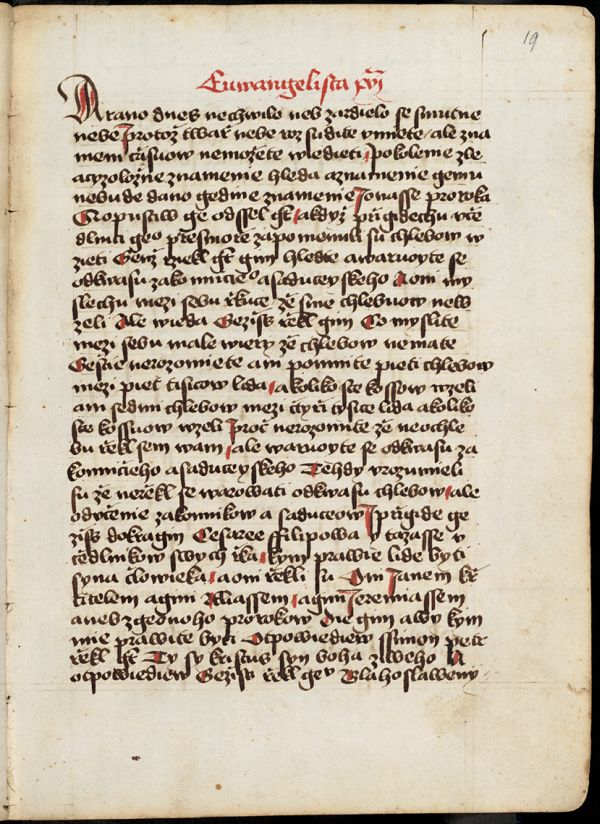 19
Euwangelista xvj
A rano dnes nechwile neb zardielo se smutne
nebe Protoz twarz nebe rozsudite vmiete / ale zna
meni czasuow nemozete wiedieti Pokolenie zle
a czyzolozne znamenie hleda a znamenie gemu
nebude dano gedine znamenie Jonasse proroka
A opustiw ge odssel gt A kdyz przigidechu vcze
dlnici geo przes morze zapomenuli su chleбow w
zieti Genz rzekl gt gim hledte a waruoyte se
odkwasu zakonniczieo a saduceyskeho A oni my
slechu mezi sebu rzkuce ze sme chlebuow new
zeli Ale wieda Geziss rzekl gim Co myslite
mezi sebu male wiery ze chlebow nemate
Gestie nerozomiete ani pomnite pieti chlebow
mezi piet tisicow lida / a koliko ste kossow wzeli
ani sedmi chlebow mezi cztyrzi tysice lida a koliko
ste kossuow wzeli Procz nerozomite ze ne o chle
bu rzekl sem wam / ale waruoyte se odkwasu za
konniczieho a saduceyskeho Tehdy vrozumieli
su ze nerzekl se warowati odkwasu chlebow / ale
od vczenie zakonnikow a saduceow J przigide ge
ziss do kragin Cesaree ffilipowa y tazasse v
czedlnikow swych rzka / kym prawie lide byti
syna czlowieka / a oni rzekli su Oni Janem krz
titelem a gini Eliassem / a gini Jeremiassem
aneb z gednoho prorokow Die gim a wy kym
mie prawite byti Otpowiediew ssimon petr
rzekl gt Ty sy kristus syn boha ziweho A
otpowiediew Geziss rzekl gev Blahoslaweny